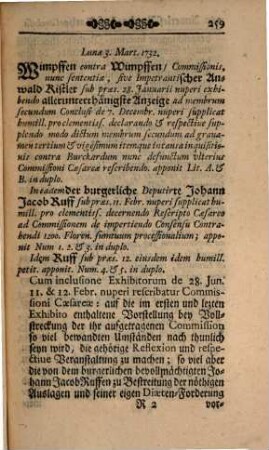 259
Lunæ 3. Mart. 1732.
Wimpffen contra Wimpffen / Commissionis,
nunc sententiæ, sive Impetrantischer An-
wald Kistler sub præs. 28. Januarii nuperi exhi-
bendo allerunterthänigste Anzeige ad membrum
secundum Conclusi de 7. Decembr. nuperi supplicat
humill. pro elementiss. declarando & respectivè sup-
plendo modo dictum membrum secundum ad grava-
men tertium & vigesimum itemque totam inquisitio-
nis contra Burckardum nunc defunctum ulterius
Commissioni Cæsareæ rescribendo. apponit Lit. A. &
B. in duplo.
In eadem der burgerliche Deputirte Johann
Jacob Ruff sub præs. 11. Febr. nuperi supplicat hu-
mill. pro elementiss. decernendo Rescripto Cæsareo
ad Commissionem de impertiendo Consensu Contra-
hendi 1200. Floren. sumtuum processualium; appo-
nit Num 1. 2. & 3. in duplo.
Idem Ruff sub præs. 12. ejusdem idem humill.
petit. apponit. Num. 4. & 5. in duplo.
Cum inclusione Exhibitorum de 28. Jan.
11. & 12. Febr. nuperi rescribatur Commissi-
oni Cæsareæ: auf die im ersten und letzten
Exhibito enthaltene Vorstellung bey Voll-
streckung der ihr aufgetragenen Commission
so viel bewandten Umständen nach thunlich
seyn wird, die gehörige Reflexion und respe-
ctive Veranstaltung zu machen; so viel aber
die von dem burgerlichen bevollmächtigten Jo-
hann Jacob Ruffen zu Bestreitung der nöthigen
Auslagen und seiner eigen Diæten-Forderung
R 2 vor-